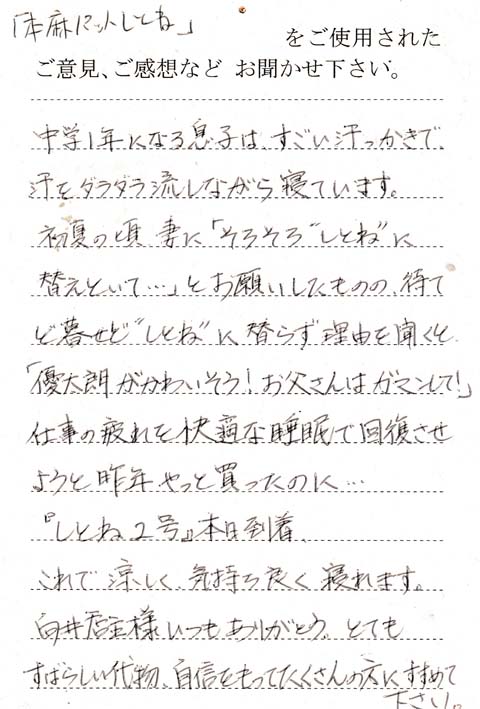 「本麻ニットしとね」
をご使用された
ご意見、ご感想など お聞かせ下さい。
中学1年になる息子は、すごい汗っかきで、
汗をダラダラ流しながら寝ています。
初夏の頃 妻に「そろそろ“しとね”に
替えといて…」とお願いしたものの、待て
ど暮せど“しとね”に替らず理由を聞くと
「優太朗がかわいそう!お父さんはガマンして!」
仕事の疲れを快適な睡眠で回復させ
ようと昨年やっと買ったのに…
『しとね2号』本日到着、
これで涼しく、気持ち良く寝れます。
向井店主様いつもありがとう。とても
すばらしい代物、自信をもってたくさんの方にすすめて
下さい。